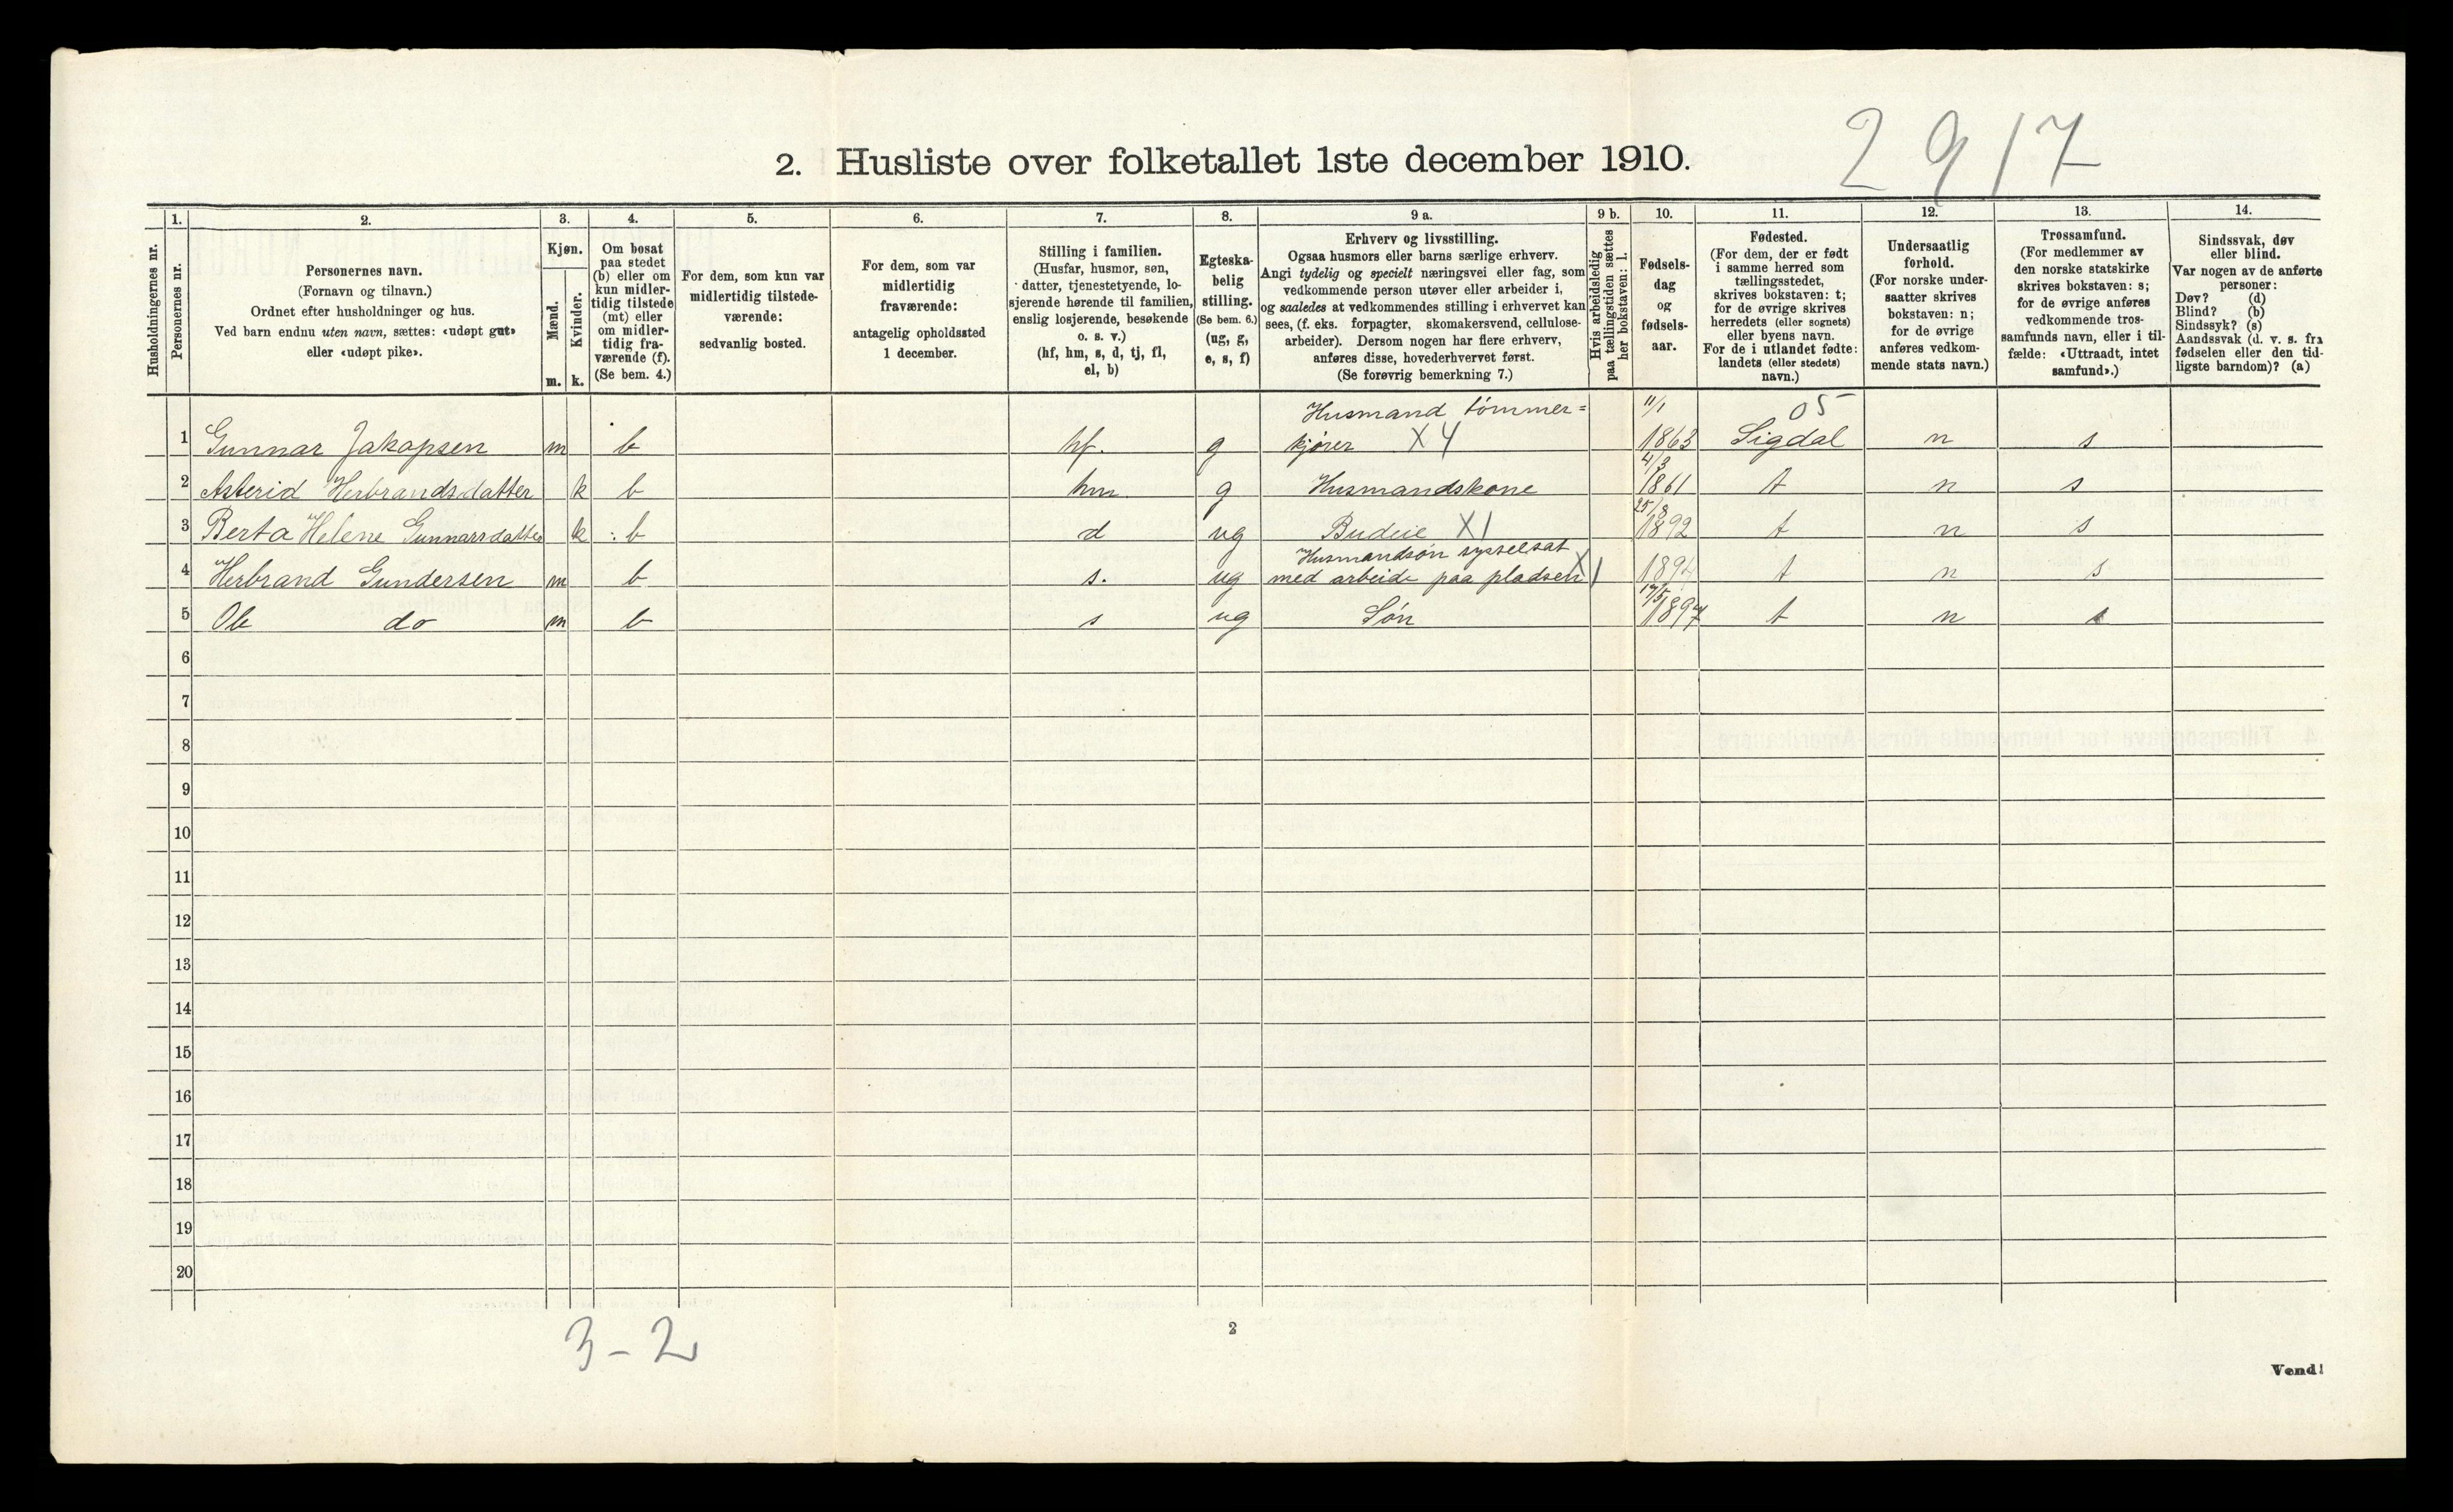 2917
2. Husliste over folketallet 1ste december 1910.
Husholdningernes nr.
1.
Personernes nr.
2.
Personernes navn.
(Fornavn og tilnavn.)
Ordnet efter husholdninger og hus.
Ved barn endnu uten navn, sættes: «udøpt gut»
eller «udøpt pike».
3.
Kjøn.
Mænd.
Kvinder.
m. k.
4.
Om bosat
paa stedet
(b) eller om
kun midler-
tidig tilstede
(mt) eller
om midler-
tidig fra-
værende (f).
(Se bem. 4.)
5.
For dem, som kun var
midlertidig tilstede-
værende:
sedvanlig bosted.
6.
For dem, som var
midlertidig
fraværende:
antagelig opholdssted
1 december.
7.
Stilling i familien.
(Husfar, husmor, søn,
datter, tjenestetyende, lo-
sjerende hørende til familien,
enslig losjerende, besøkende
o. s. v.)
(hf, hm, s, d, tj, fl,
el, b)
8.
Egteska-
belig
stilling.
(Se bem. 6.)
(ug, g,
e, s, f)
9 a.
Erhverv og livsstilling.
Ogsaa husmors eller barns særlige erhverv.
Angi tydelig og specielt næringsvei eller fag, som
vedkommende person utøver eller arbeider i,
og saaledes at vedkommendes stilling i erhvervet kan
sees, (f. eks. forpagter, skomakersvend, cellulose-
arbeider). Dersom nogen har flere erhverv,
anføres disse, hovederhvervet først.
(Se forøvrig bemerkning 7.)
9 b.
Hvis arbeidsledig
paa tællingstiden sættes
her bokstaven: l.
10.
Fødsels-
dag
og
fødsels-
aar.
11.
Fødested.
(For dem, der er født
i samme herred som
tællingsstedet,
skrives bokstaven: t;
for de øvrige skrives
herredets (eller sognets)
eller byens navn.
For de i utlandet fødte:
landets (eller stedets)
navn.)
12.
Undersaatlig
forhold.
(For norske under-
saatter skrives
bokstaven: n;
for de øvrige
anføres vedkom-
mende stats navn.)
13.
Trossamfund.
(For medlemmer av
den norske statskirke
skrives bokstaven: s;
for de øvrige anføres
vedkommende tros-
samfunds navn, eller i til-
fælde: «Uttraadt, intet
samfund».)
14.
Sindssvak, døv
eller blind.
Var nogen av de anførte
personer:
Døv? (d)
Blind? (b)
Sindssyk? (s)
Aandssvak (d. v. s. fra
fødselen eller den tid-
ligste barndom)? (a)
Husmand tømmer= 11/1 05
1 Gunnar Jakopsen m b hf. g kjører X4 1863 Sigdal n s
4/3
2 Asterid Herbrandsdatter k b hm g Husmandskone 1861 t n s
25/8
3 Berta Helene Gunnarsdatter k b d ug Budeie X1 1892 t n s
Husmandsøn sysselsat
4 Herbrand Gundersen m b s. ug med arbeide paa pladsen X1 1894 t n s
17/5
5 Ole do m b s ug Søn 1897 t n s
6
7
8
9
10
11
12
13
14
15
16
17
18
19
20
3-2
2
Vend!